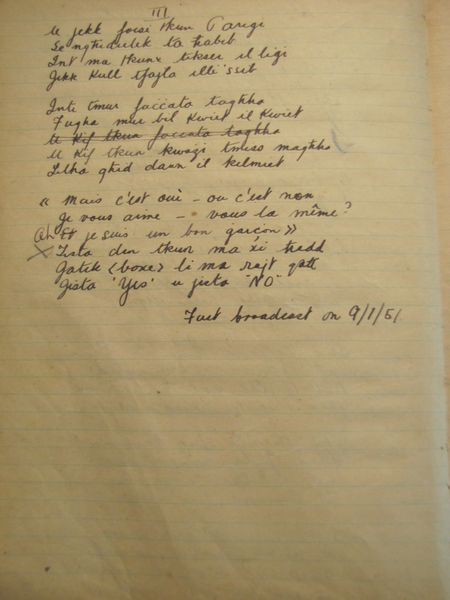 III
U jekk forsi tkun Parigi
Se nghidulek ta habib
Int ma tkunx tikser il ligi
Jekk kull tfajla illi ssib
Inti tmur faccata taghha
Fugha mur bil kwiet il kwiet
U kif tkun faccata taghha
U kif tkun kwazi tmiss maghha
Itha ghid dawn il kelmiet
« Mais c'est oui - ou c'est non
Je vous aime - vous la même?
(Ah) Et je suis un bon garçon »
X Izda din tkun ma xi hadd
Gatek (boxe) li ma rajt qatt
Gista 'Yes' u gista "NO"
First broadcast on 9/1/51